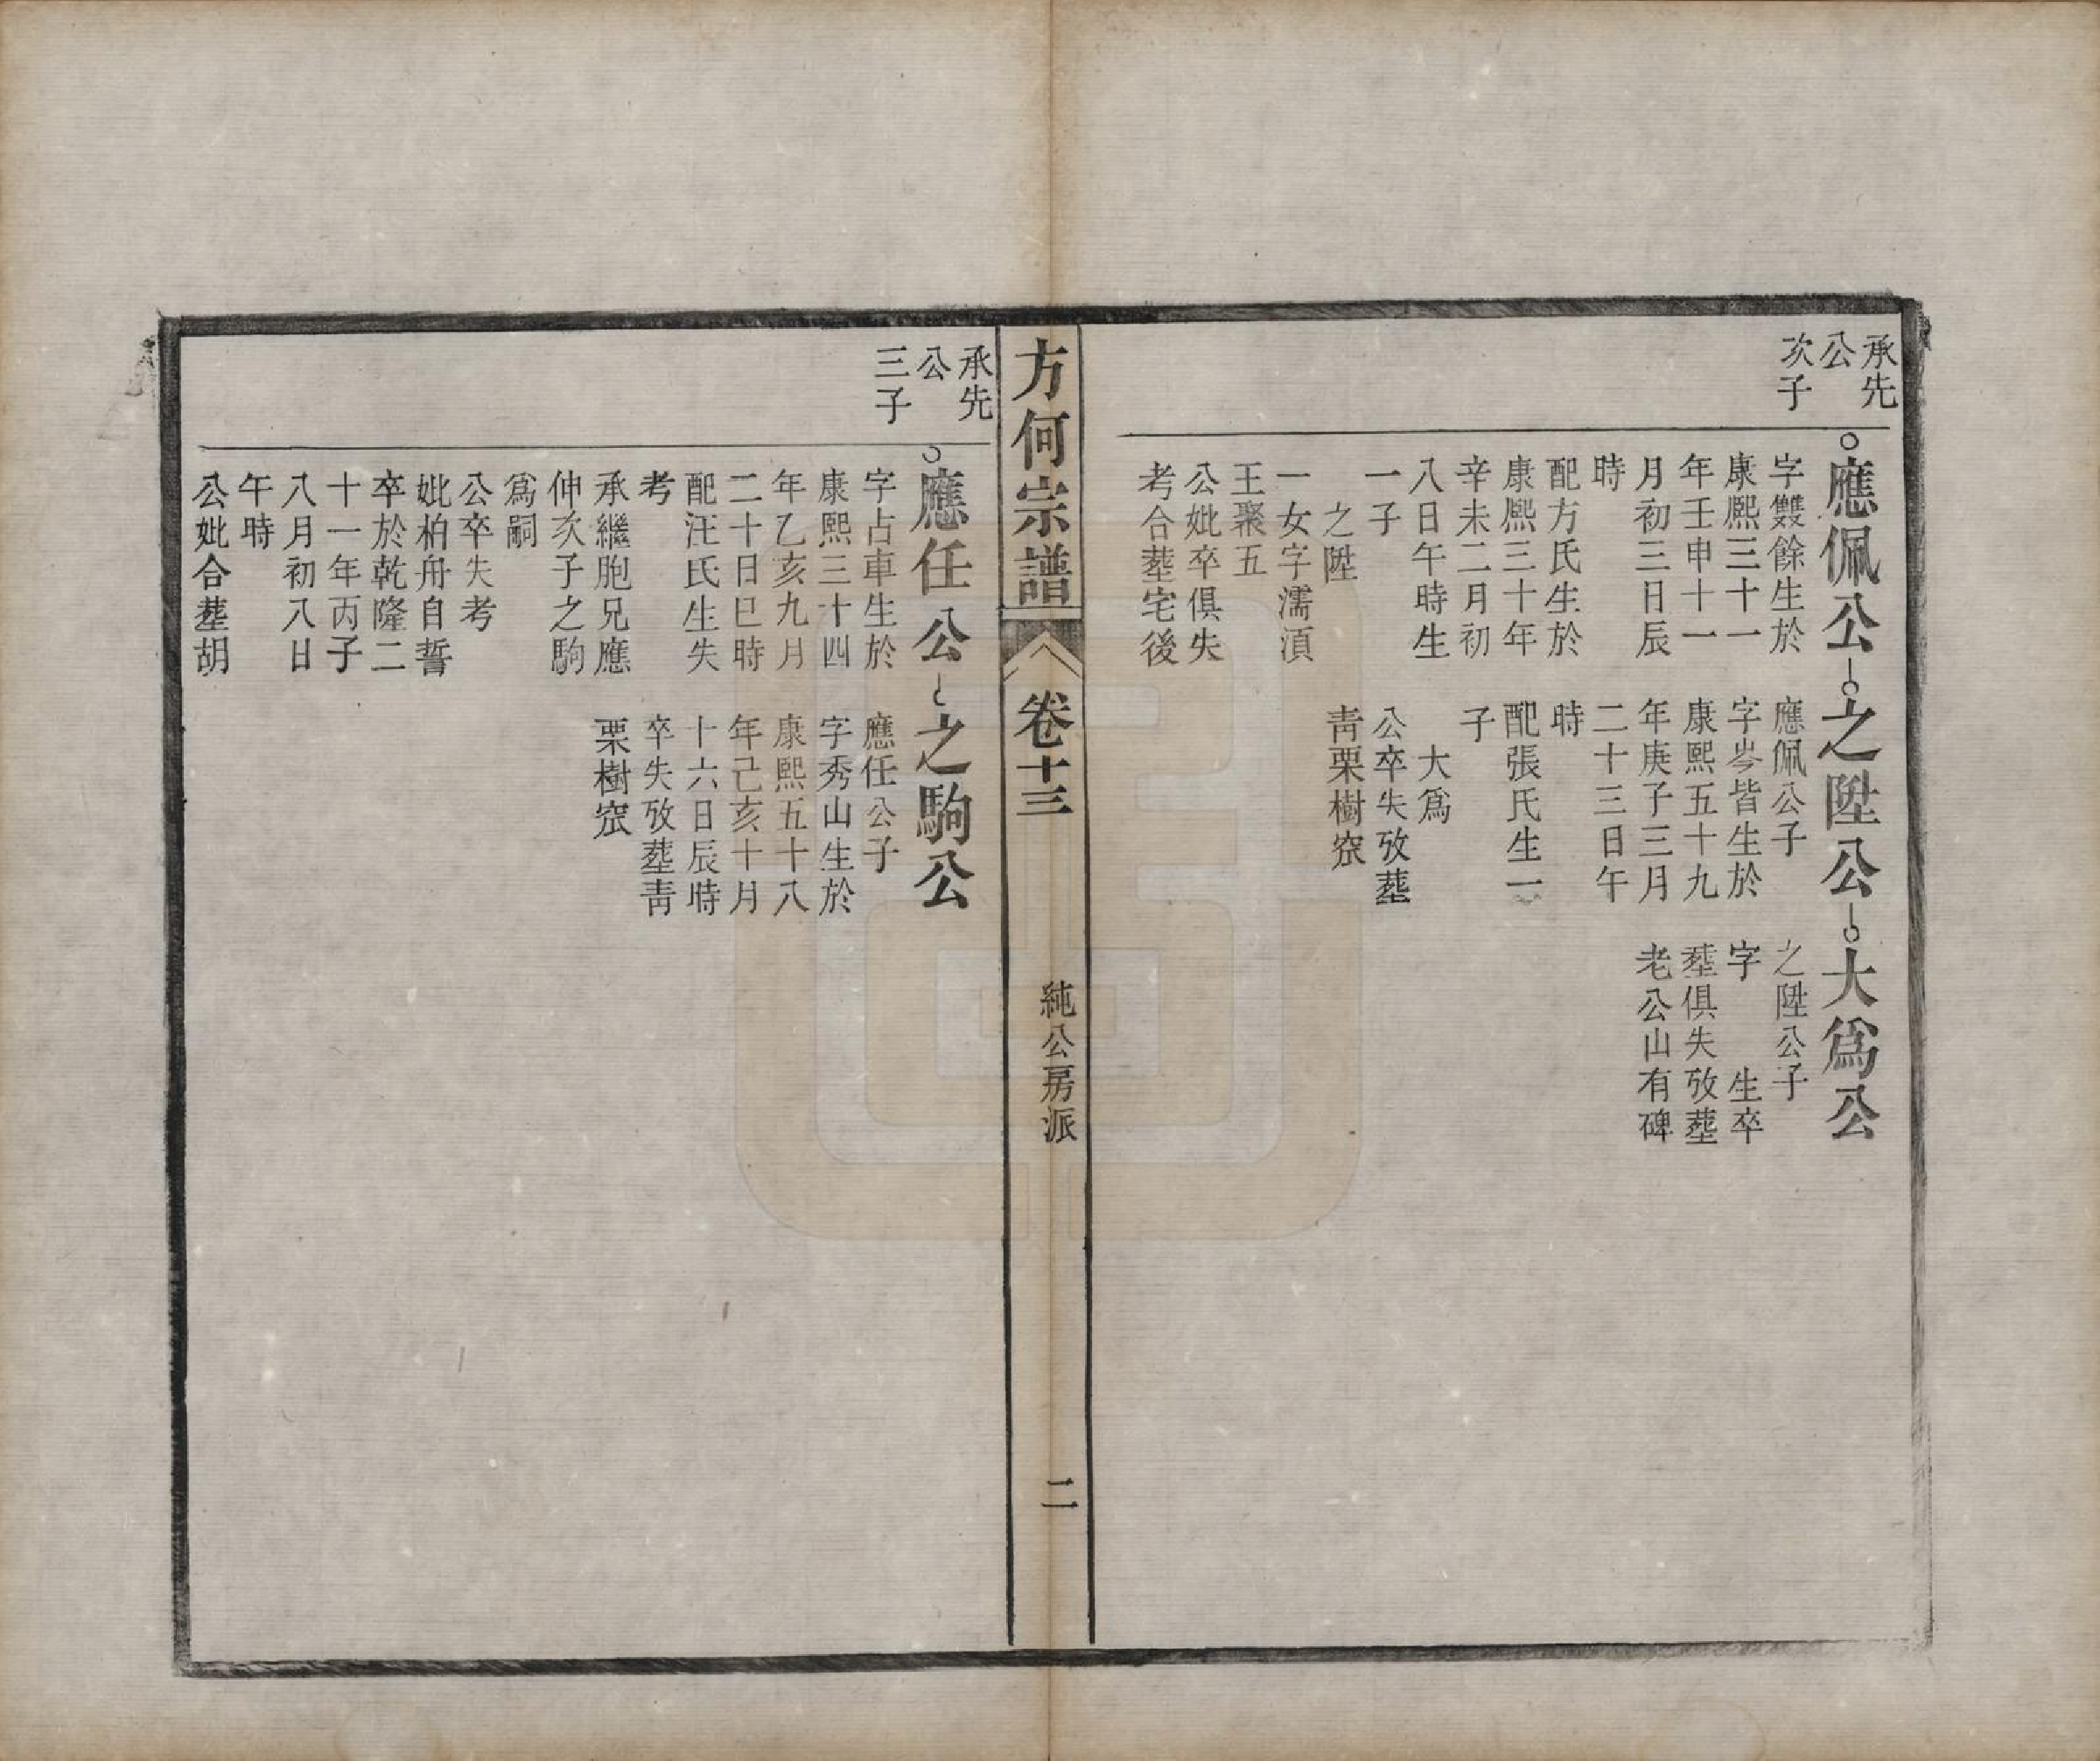 承先
公
次子
應佩公
字雙餘生於
康熙三十一
年壬申十一
月初三日辰
時
配方氏生於
康熙三十年
辛未二月初
八日午時生
一子
之陞
一女字濡湏
王聚五
公妣卒俱失
考合塟宅後
之陞公
應佩公子
字岑皆生於
康熙五十九
年庚子三月
二十三日午
時
配張氏生一
子
大爲
公卒失攷塟
靑栗樹窊
大爲公
之陞公子
字 生卒
塟俱失攷塟
老公山有碑
方何宗譜
卷十三
純公房派
二
承先
公
三子
應任公
字占車生於
康熙三十四
年乙亥九月
二十日巳時
配汪氏生失
考
承繼胞兄應
仲次子之駒
爲嗣
公卒失考
妣柏舟自誓
卒於乾隆二
十一年丙子
八月初八日
午時
公妣合塟胡
之駒公
應任公子
字秀山生於
康熙五十八
年己亥十月
十六日辰時
卒失攷塟靑
栗樹窊